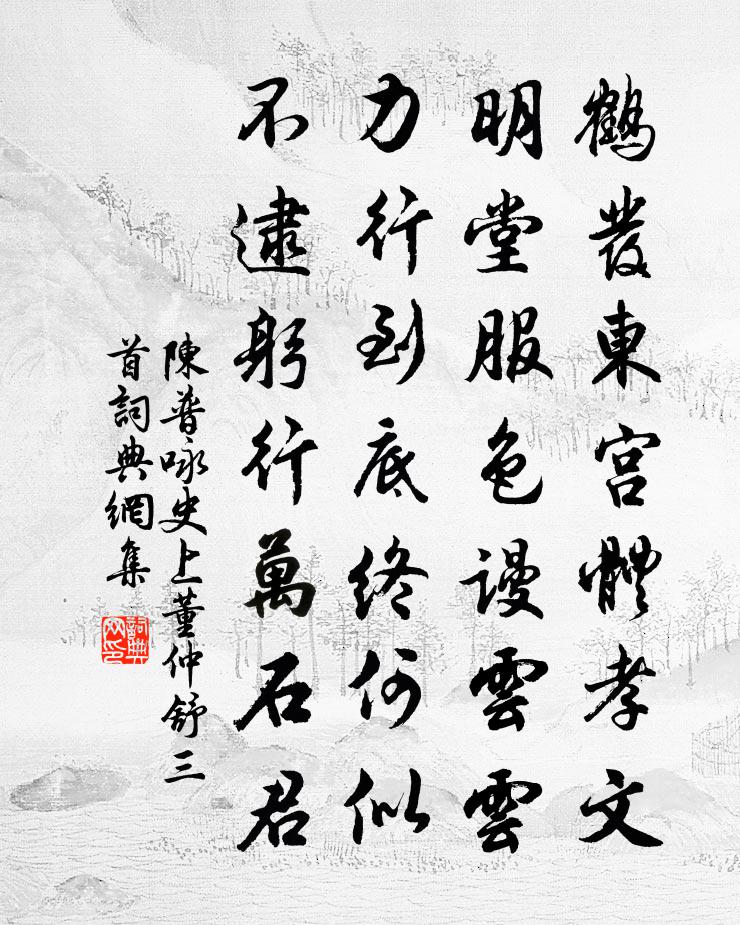 鶴發東宮體孝文
明堂服色謾雲雲
力行到底終何似
不逮躬行萬石君
陳普咏史上董仲舒三
首詞典網集
詞典
网印